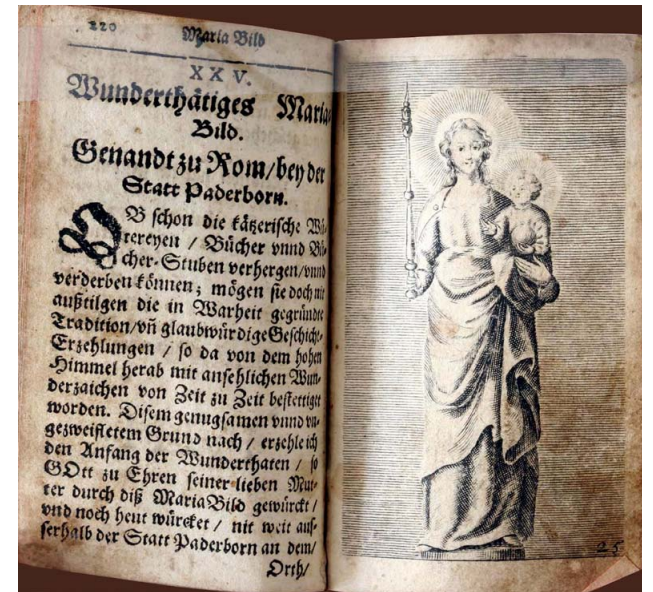 220 Maria Bild
XXV.
Wunderthätiges Maria-
Bild.
Genandt zu Rom/bey der
Statt Paderborn.
OB schon die kätzerische Wü-
rereyen / Bücher vnnd Bü-
cher-Stuben verhergen/vnnd
verderben können; mögen sie doch nit
außtilgen die in Warheit gegründte
Tradition/vñ glaubwürdige Geschicht-
Erzehlungen / so da von dem hohen
Himmel herab mit ansehlichen Wun-
derzaichen von Zeit zu Zeit bestettiget
worden. Disem genugsamen vnnd vn-
gezweifletem Grund nach / erzehle ich
den Anfang der Wunderthaten / so
GOtt zu Ehren seiner lieben Mut-
ter durch diß Maria Bild gewürckt /
vnd noch heut würcket / nit weit auß-
serhalb der Statt Paderborn an dem/
Orth/
25